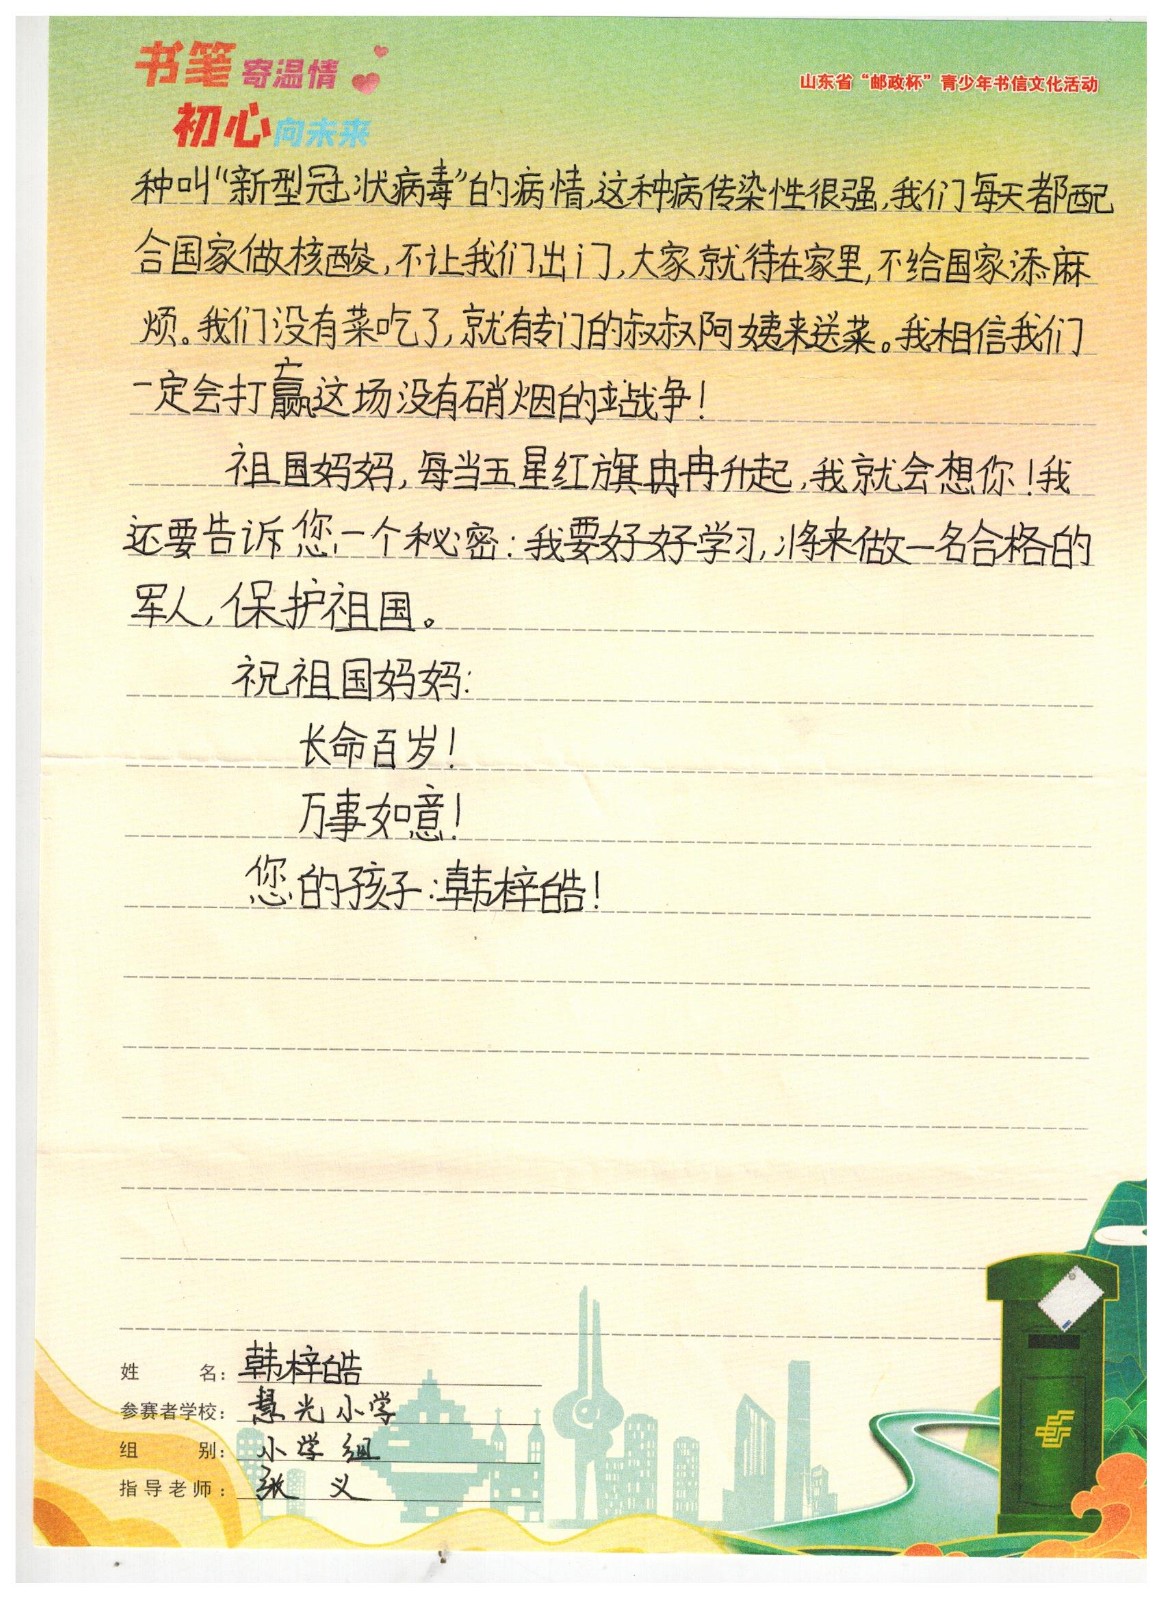 书笔寄温情
初心向未来
山东省“邮政杯”青少年书信文化活动
种叫“新型冠状病毒”的病情,这种病传染性很强,我们每天都配
合国家做核酸,不让我们出门,大家就待在家里,不给国家添麻
烦。我们没有菜吃了,就有专门的叔叔阿姨来送菜。我相信我们
一定会打赢这场没有硝烟的战争!
祖国妈妈,每当五星红旗冉冉升起,我就会想你!我
还要告诉您一个秘密:我要好好学习,将来做一名合格的
军人,保护祖国。
祝祖国妈妈:
长命百岁!
万事如意!
您的孩子:韩梓皓!
姓名:韩梓皓
参赛者学校:慧光小学
组别:小学组
指导老师:张义